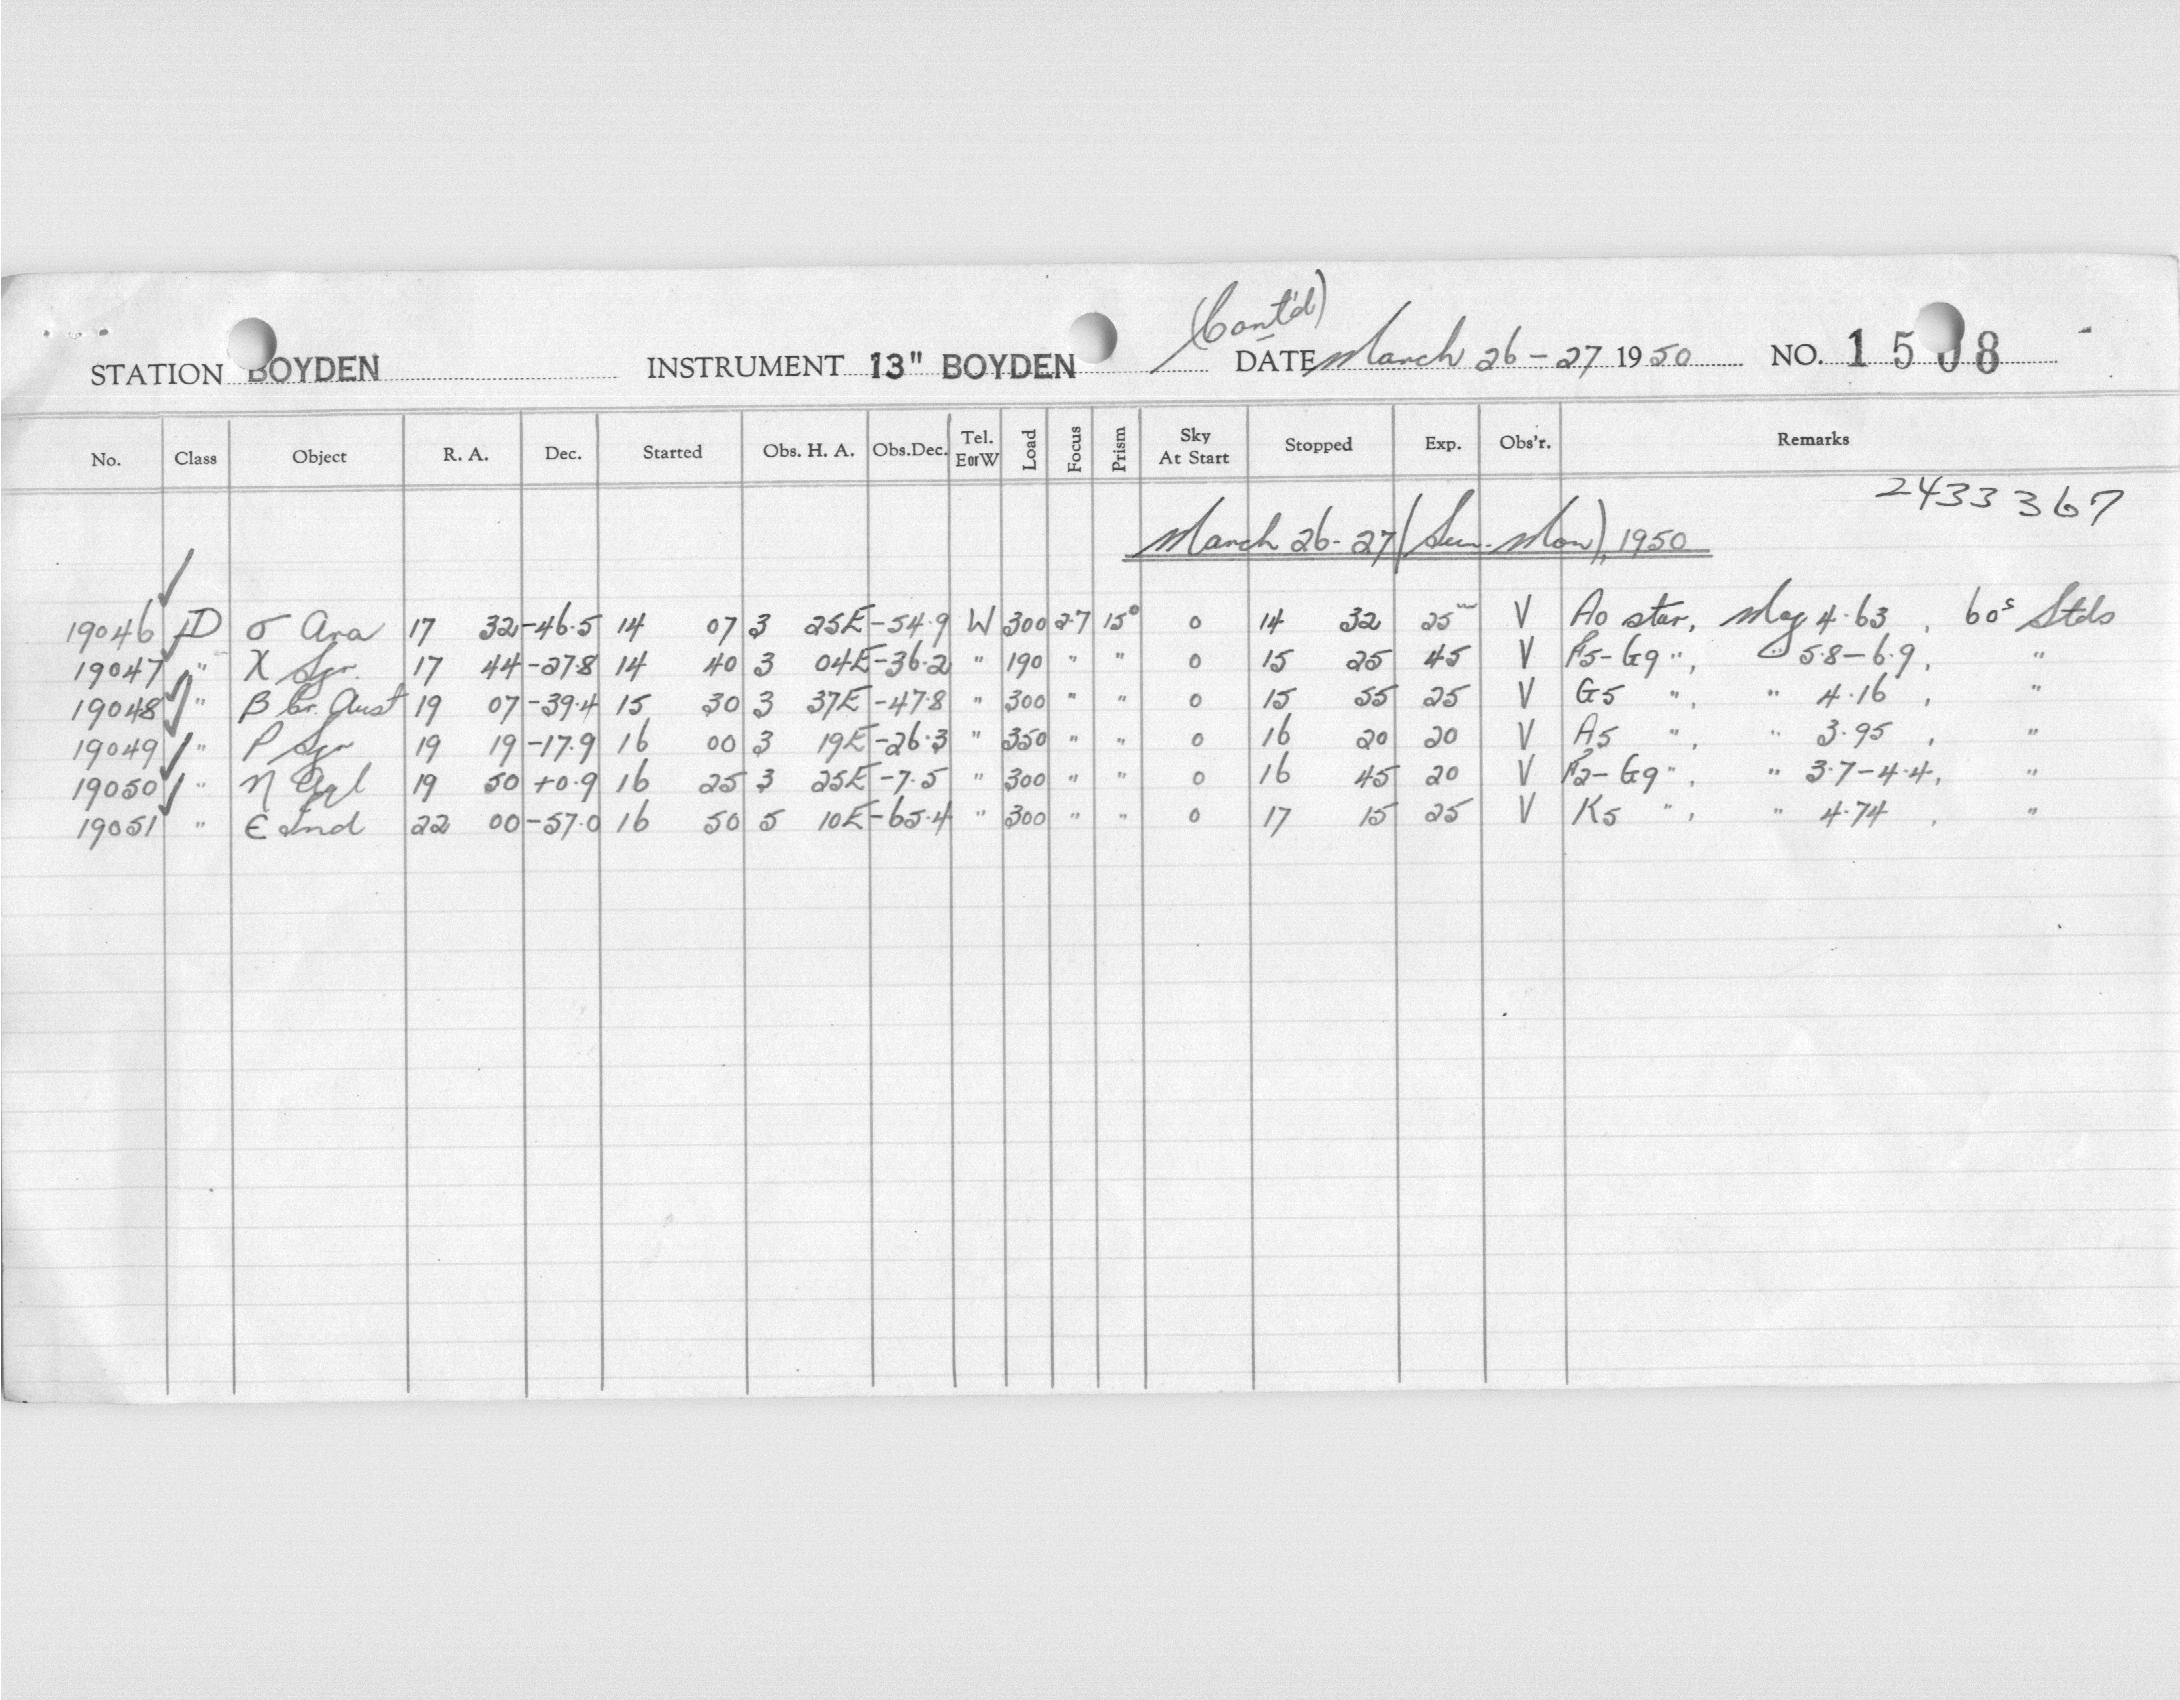 (Cont'd)
STATION BOYDEN INSTRUMENT 13" BOYDEN DATE March 26-27 1950 NO. 1508
No. Class Object R. A. Dec. Started Obs. H. A. Obs.Dec. Tel. EorW Load Focus Prism Sky At Start Stopped Exp. Obs'r. Remarks
2433367
March 26-27 (Sun-Mon), 1950
19046 D σ Ara 17 32 -46.5 14 07 3 25E -54.9 W 300 2.7 15° 0 14 32 25m V A0 star, Mag 4.63, 60s Stds
19047 " X Sgr. 17 44 -27.8 14 40 3 04E -36.2 " 190 " " 0 15 25 45 V F5-G9 ", " 5.8-6.9, "
19048 " β Cr. Aust 19 07 -39.4 15 30 3 37E -47.8 " 300 " " 0 15 55 25 V G5 ", " 4.16, "
19049 " ρ Sgr 19 19 -17.9 16 00 3 19E -26.3 " 350 " " 0 16 20 20 V A5 ", " 3.95, "
19050 " η Aql 19 50 +0.9 16 25 3 25E -7.5 " 300 " " 0 16 45 20 V F2-G9 ", " 3.7-4.4, "
19051 " ε Ind 22 00 -57.0 16 50 5 10E -65.4 " 300 " " 0 17 15 25 V K5 ", " 4.74, "